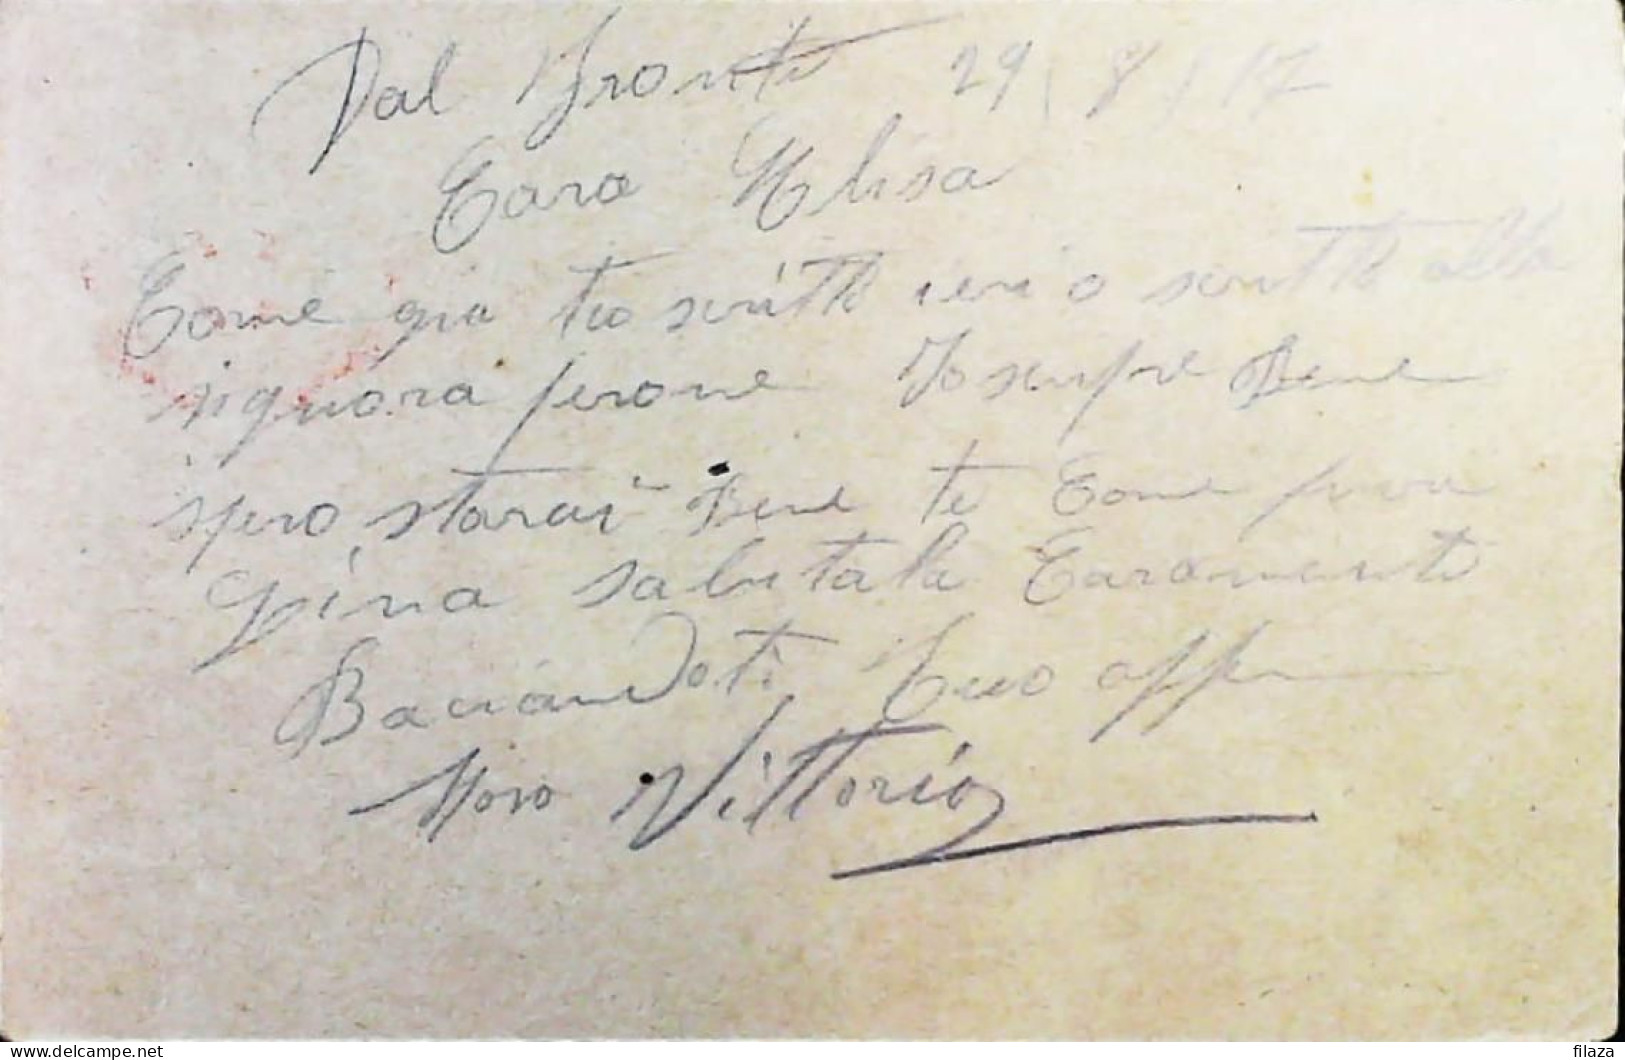 Dal Fronte 29 / 8 / 17
Cara Elisa
Come già tio scritto ieri o scritto alla
signora perone Io sempre Bene
spero starai Bene te Come pura
Gina salutala Caramente
Baciandoti tuo aff
Moro Vittorio
delcampe.net
filaza